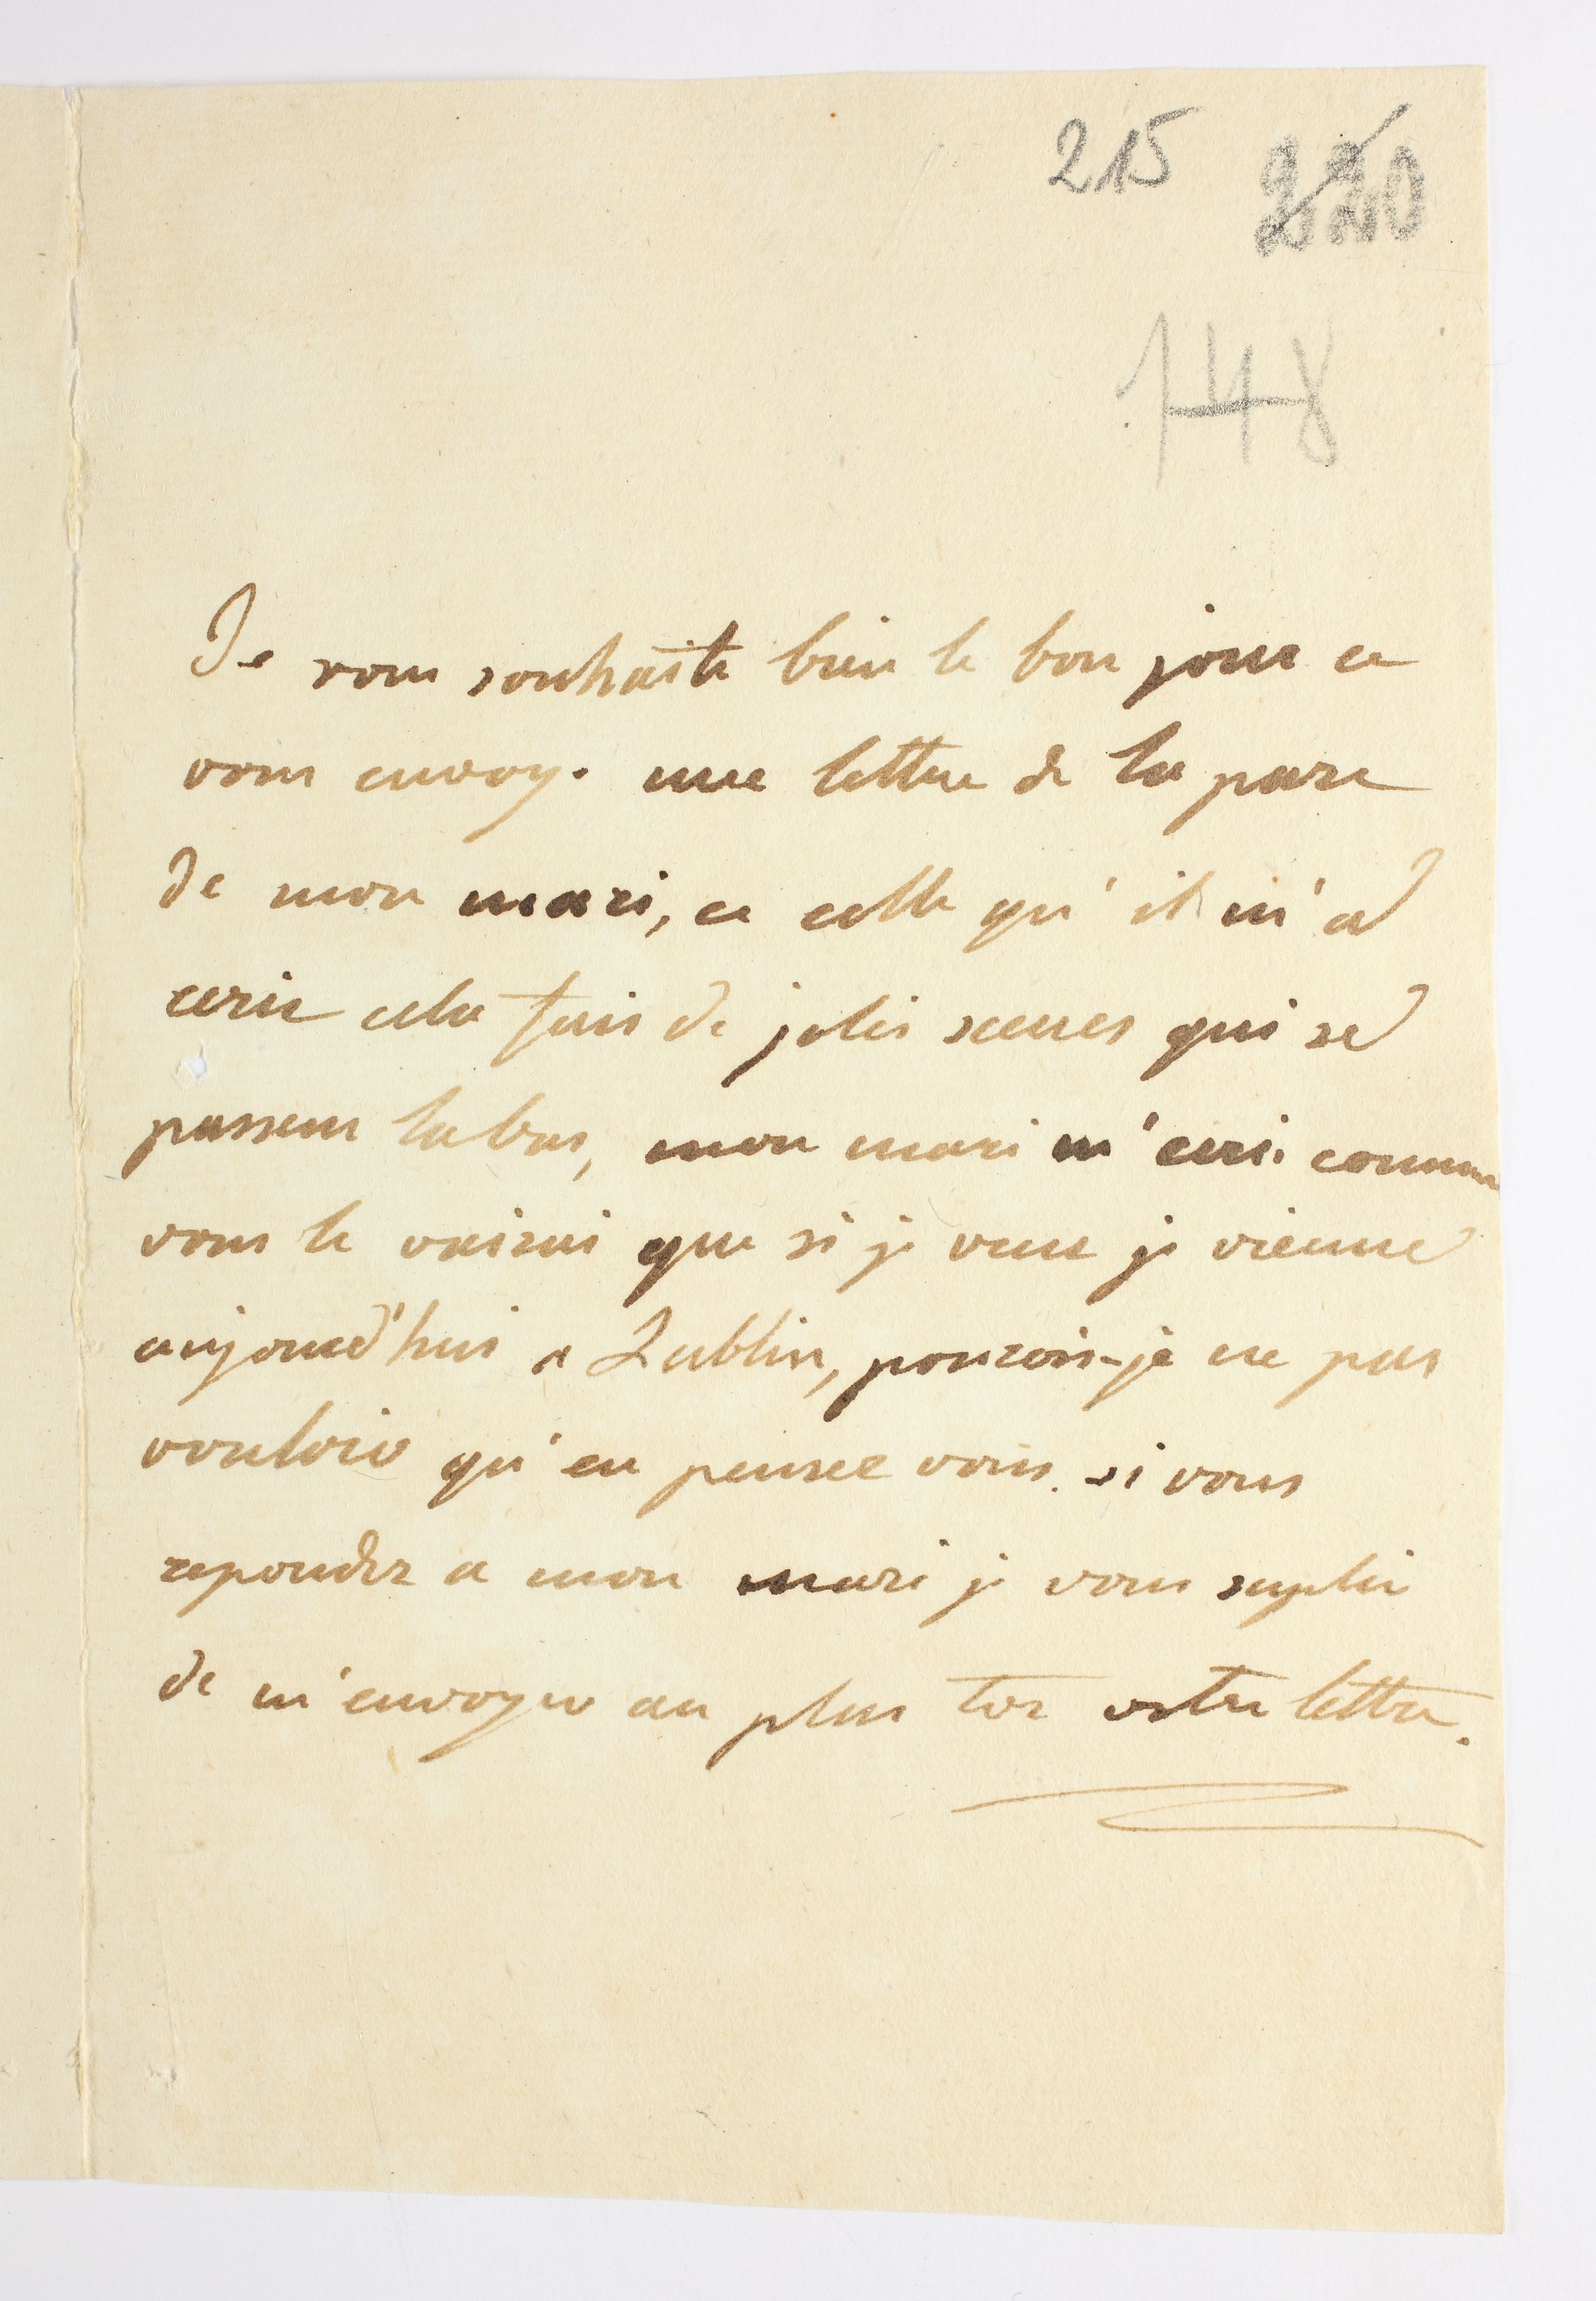 215 220
148
Je vous souhaite bien le bon jour et
vous envoy. une lettre de la part
de mon mari, et celle qu'il m'a
ecrit cela fait de jolis scenes qui se
passent labas, mon mari m'ecri comme
vous le vairai que si je veut je vienne
aujourd'hui a Lublin, pourois-je ne pas
vouloir qu'en pensee vous. si vous
reponder a mon mari je vous suplie
de m'envoyer au plus tot votre lettre.